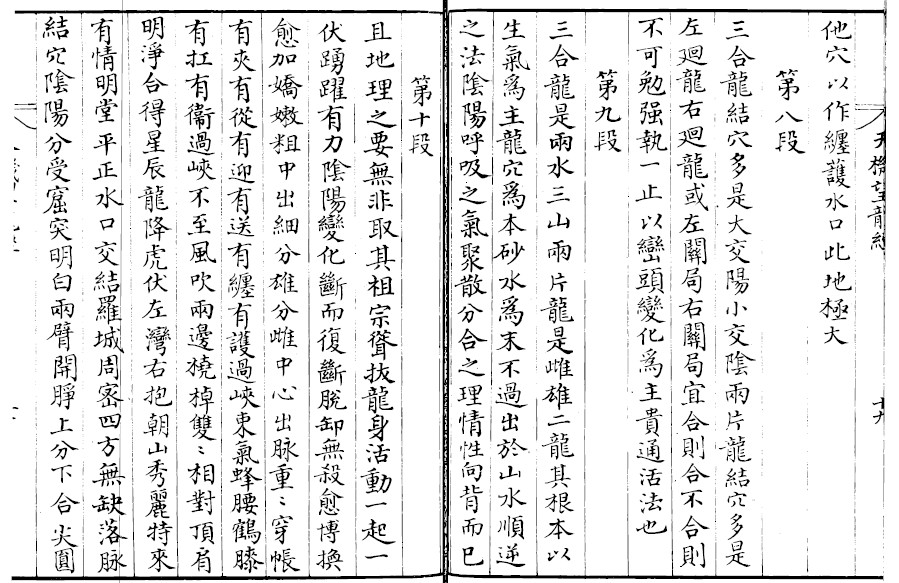 天機望龍經
十九
他穴以作纏護水口此地極大
第八段
三合龍結穴多是大交陽小交陰兩片龍結穴多是
左廻龍右廻龍或左關局右關局宜合則合不合則
不可勉强執一止以巒頭變化爲主貴通活法也
第九段
三合龍是兩水三山兩片龍是雌雄二龍其根本以
生氣爲主龍穴爲本砂水爲末不過出於山水順逆
之法陰陽呼吸之氣聚散分合之理情性向背而已
第十段
且地理之要無非取其祖宗聳拔龍身活動一起一
伏踴躍有力陰陽變化斷而復斷脫卸無殺愈博換
愈加嬌嫩粗中出細分雄分雌中心出脉重〻穿帳
有夾有從有迎有送有纏有護過峽束氣蜂腰鶴膝
有扛有衞過峽不至風吹兩邊橈棹雙〻相對頂肩
明淨台得星辰龍降虎伏左灣右抱朝山秀麗特來
有情明堂平正水口交結羅城周密四方無缺落脉
結穴陰陽分受窟突明白兩臂開睜上分下合尖圓